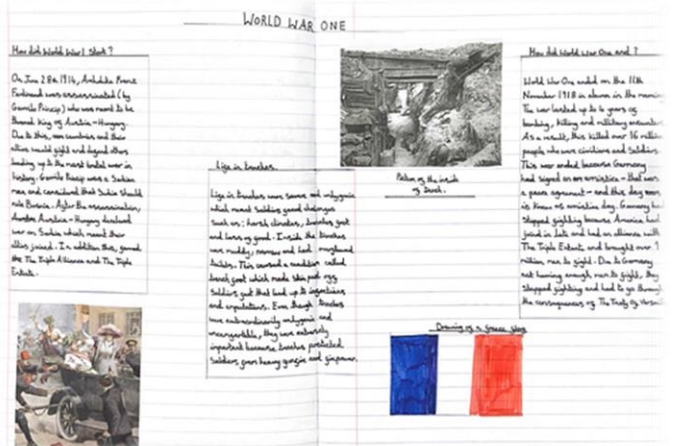 WORLD WAR ONE
How did World War 1 start?
On June 28th 1914, Archduke Franz
Ferdinand was assassinated (by
Gavrilo Princip) who was meant to be
the next king of Austria-Hungary
Due to this, countries and their
allies would fight and defend others
leading up to the most brutal war in
history. Gavrilo Princip was a Serbian
man and considered that Serbia should
rule Bosnia. After the assassination,
Austria-Hungary declared
war on Serbia which meant their
allies joined. In addition this, formed
the The Triple Alliance and The Triple
Entente.
Life in trenches.
Life in trenches were severe and unhygienic
which meant soldiers faced challenges
such as: harsh climates, trench foot
and lots of food. Inside the trenches
was muddy, narrow and had
builds. This caused a condition called
trench foot which made skin peel off
soldiers feet that lead up to infections
and amputations. Even though trenches
were extraordinarily unhygienic and
uncomfortable, they were extremely
important because trenches protected
soldiers from heavy gunfire and
Picture of the inside
of trench.
Drawing of a France flag
How did World War One end?
World War One ended on the 11th
November 1918 in eleven in the morning
The war lasted up to 4 years of
bombing, killing and military encounters
As a result, this killed over 16 million
people who were civilians and soldiers.
This war ended because Germany
had signed on an armistice - that was
a peace agreement - and this day now
is known as armistice day. Germany had
stopped fighting because America had
joined in late and had an alliance with
The Triple Entente and brought over
million men to fight. Due to Germany
not having enough men to fight, they
stopped fighting and had to go through
the consequences of The Treaty of Versailles